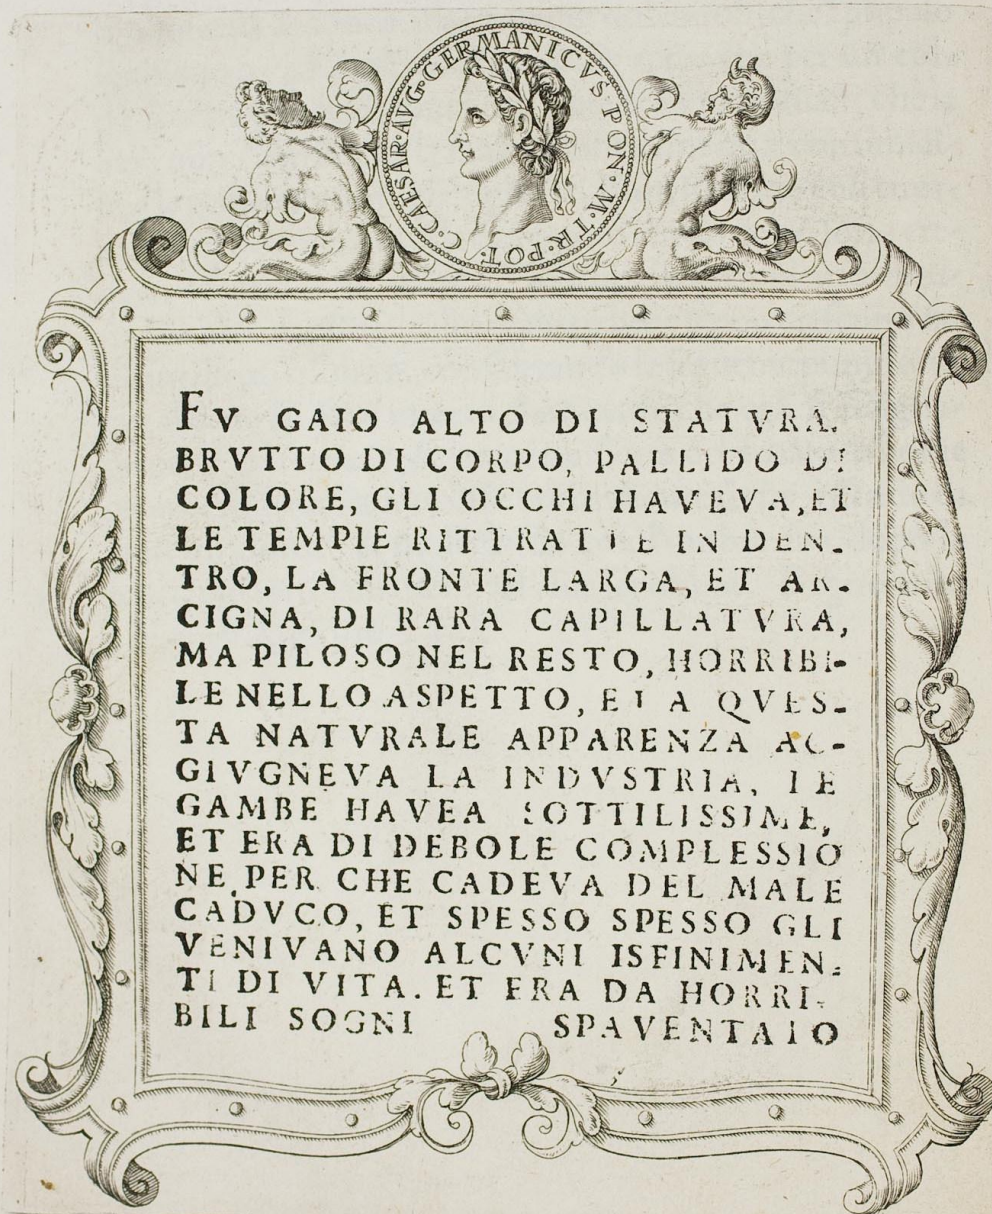 C·CAESAR·AVG·GERMANICVS PON·M·TR·POT·
FV GAIO ALTO DI STATVRA.
BRVTTO DI CORPO, PALLIDO DI
COLORE, GLI OCCHI HAVEVA, ET
LE TEMPIE RITTRATTE IN DEN-
TRO, LA FRONTE LARGA, ET AR-
CIGNA, DI RARA CAPILLATVRA,
MA PILOSO NEL RESTO, HORRIBI-
LE NELLO ASPETTO, ET A QVES-
TA NATVRALE APPARENZA AC-
GIVGNEVA LA INDVSTRIA, LE
GAMBE HAVEA SOTTILISSIME,
ET ERA DI DEBOLE COMPLESSIO
NE, PER CHE CADEVA DEL MALE
CADVCO, ET SPESSO SPESSO GLI
VENIVANO ALCVNI ISFINIMEN-
TI DI VITA. ET ERA DA HORRI-
BILI SOGNI SPAVENTATO